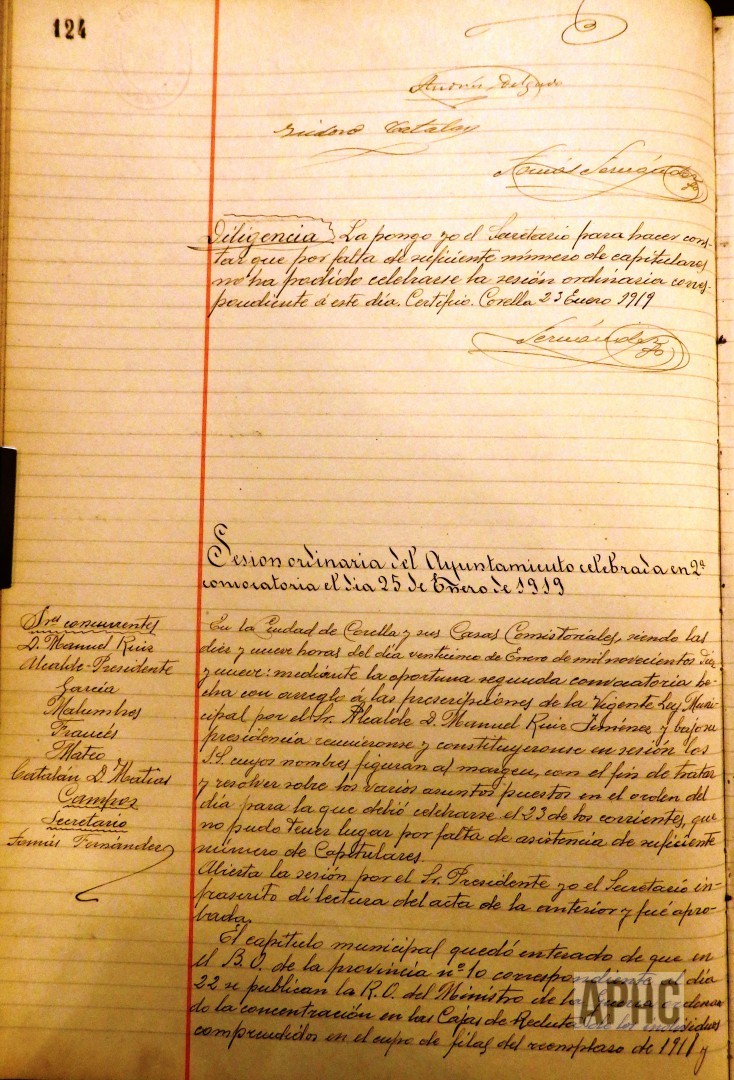 124
Andrés Delgado
Isidoro Catalan
Tomás Fernández
Diligencia. La pongo yo el Secretario para hacer cons-
tar que por falta de suficiente número de capitulares
no ha podido celebrarse la sesión ordinaria corres-
pondiente á este día. Certifico. Corella 23 Enero 1919
Fernández
Sesion ordinaria del Ayuntamiento celebrada en 2ª
convocatoria el dia 25 de Enero de 1919
Sres concurrentes
D. Manuel Ruiz
Alcalde-Presidente
Garcia
Malumbres
Francés
Mateo
Catalan D. Matias
Campos
Secretario
Tomás Fernández
En la Ciudad de Corella y sus Casas Consistoriales, siendo las
diez y nueve horas del día venticinco de Enero de mil novecientos diez
y nueve: mediante la oportuna segunda convocatoria he-
cha con arreglo á las prescripciones de la Vigente Ley Muni-
cipal por el Sr. Alcalde D. Manuel Ruiz Jiménez y bajo su
presidencia reunieronse y constituyeronse en sesión los
S.S. cuyos nombres figuran al margen, con el fin de tratar
y resolver sobre los varios asuntos puestos en el orden del
día para la que debió celebrarse el 23 de los corrientes, que
no pudo tener lugar por falta de asistencia de suficiente
número de Capitulares.
Abierta la sesión por el Sr. Presidente yo el Secretario in-
frascrito dí lectura del acta de la anterior y fué apro-
bada.
El capítulo municipal quedó enterado de que en
el B. O. de la provincia nº 10 correspondiente al día
22 se publican la R. O. del Ministro de la Guerra ordenan
do la concentración en las Cajas de Recluta de los individuos
comprendidos en el cupo de filas del reemplazo de 1918 y
APHC